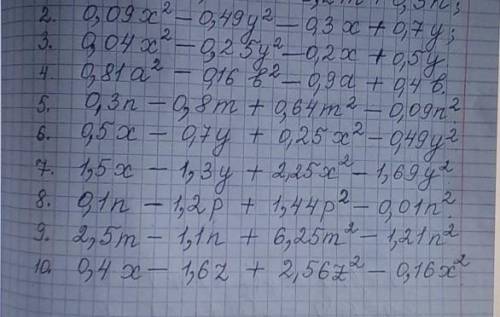 2. 0,09x² – 0,49y² – 0,3x + 0,7y;
3. 0,04x² – 0,25y² – 0,2x + 0,5y
4. 0,81a² – 0,16b² – 0,9a + 0,4b.
5. 0,3n – 0,8m + 0,64m² – 0,09n²
6. 0,5x – 0,7y + 0,25x² – 0,49y²
7. 1,5x – 1,3y + 2,25x² – 1,69y²
8. 0,1n – 1,2p + 1,44p² – 0,01n².
9. 2,5m – 1,1n + 6,25m² – 1,21n²
10. 0,4x – 1,6z + 2,56z² – 0,16x²